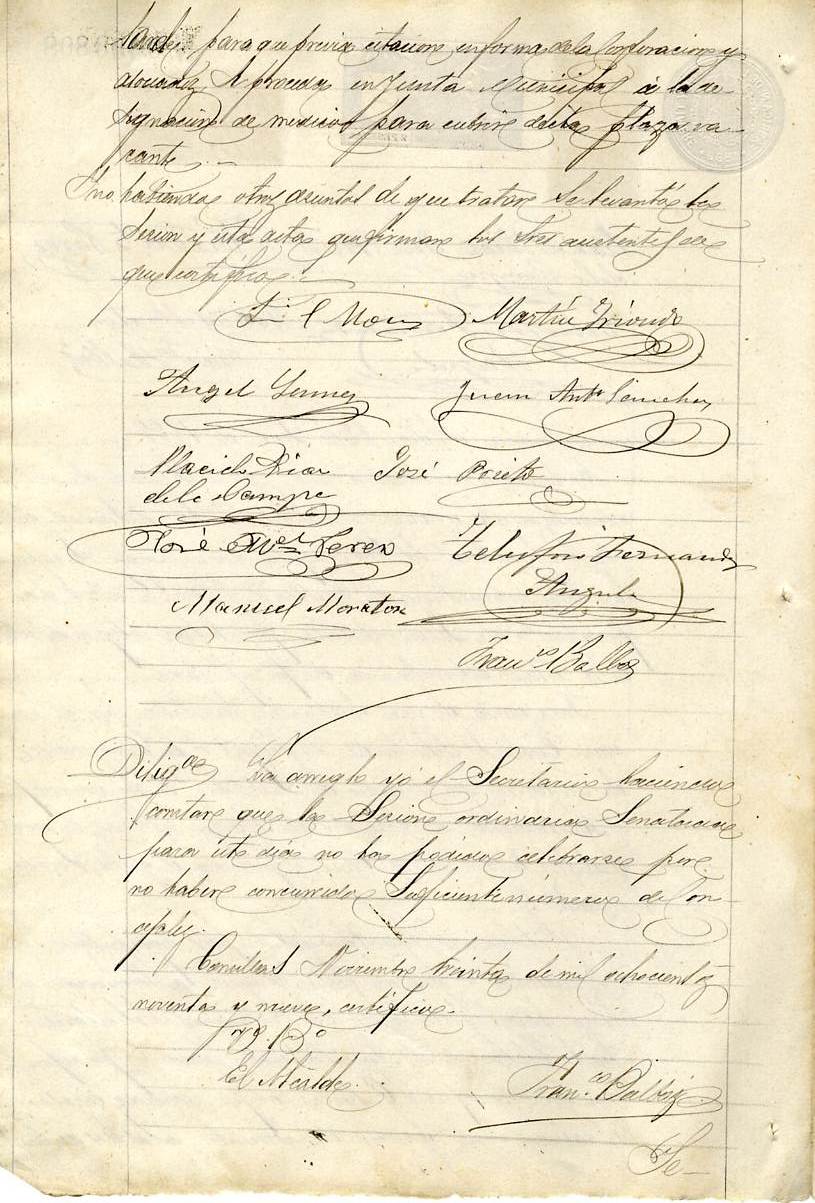 tarde, para que previa citacion en forma de la Corporacion y
asociados se proceda en Junta Municipal á la de-
signacion de medico para cubrir dicha plaza va-
cante. -
Y no habiendo otros asuntos de que tratar se levantó la
sesion y esta acta que firman los Sres asistentes de
que certifico. -
Martin Yriondo
Angel Juan Antº Sanchez
Placido Diaz José Prieto
de la Campa
José Mª Perez Telesforo Fernandez
Angulo
Manuel Moraton
Franco Balboa
Diliga La arreglo yo el Secretario haciendo
constar que la Sesion ordinaria Senalada
para este dia no ha podido celebrarse por
no haber concurrido suficiente número de Con-
cejales.
Noviembre treinta de mil ochocientos
noventa y nueve, certifico.
Vº Bº
El Alcalde.
Franco Balboa
Se-